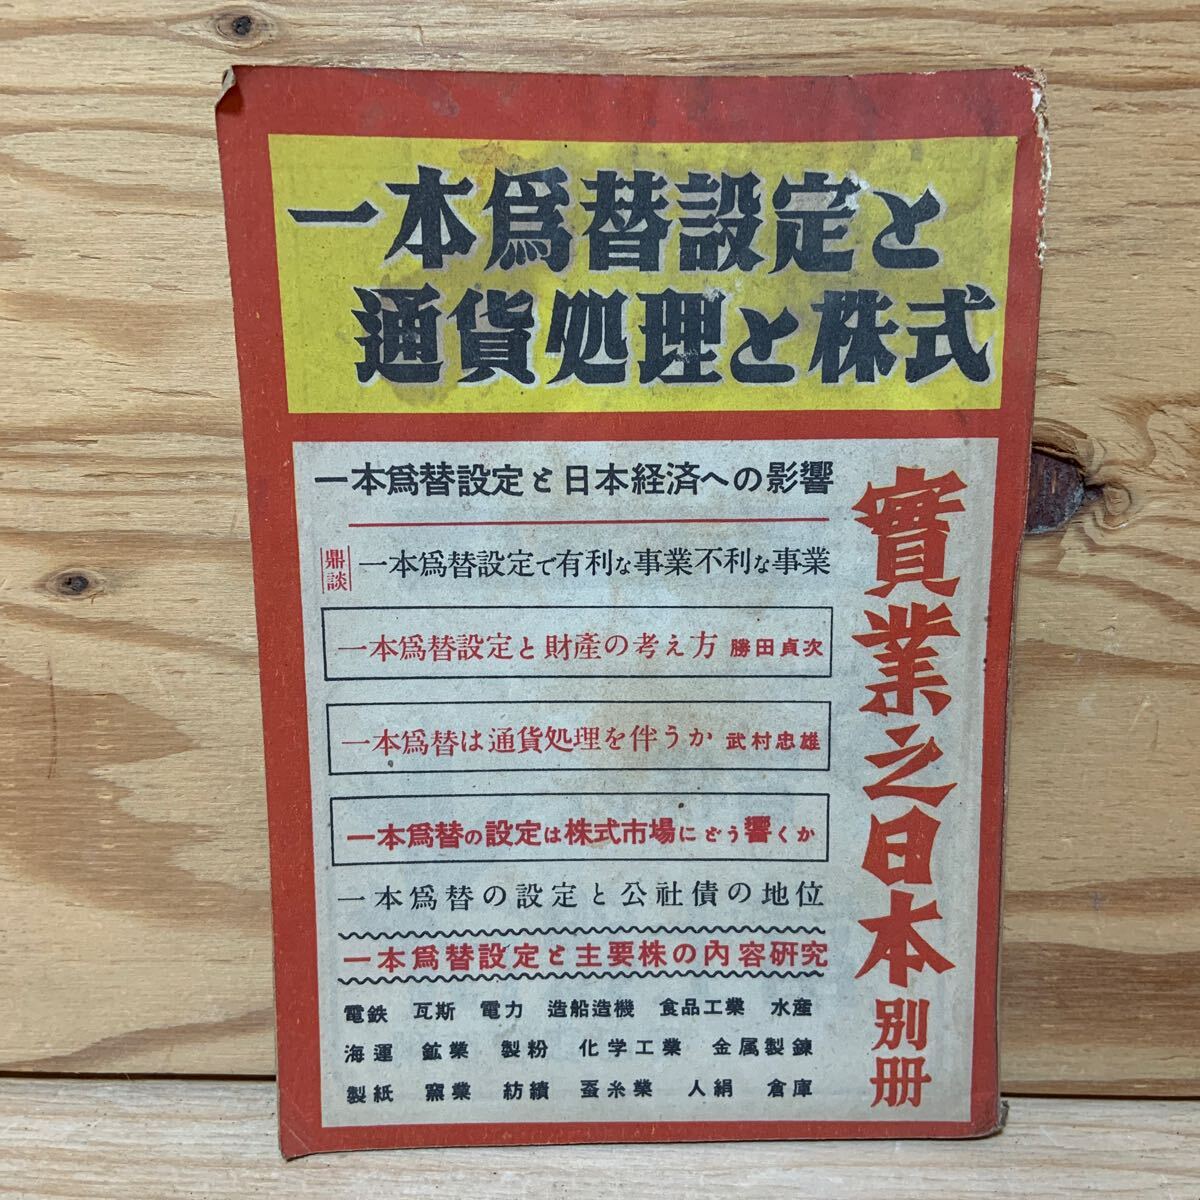 一本爲替設定と
通貨処理と株式
實業之日本 別册
一本爲替設定と日本経済への影響
鼎談 一本爲替設定で有利な事業不利な事業
一本爲替設定と財産の考え方 勝田貞次
一本爲替は通貨処理を伴うか 武村忠雄
一本爲替の設定は株式市場にどう響くか
一本爲替の設定と公社債の地位
一本爲替設定と主要株の内容研究
電鉄 瓦斯 電力 造船造機 食品工業 水産
海運 鉱業 製粉 化学工業 金属製錬
製紙 窯業 紡績 蚕糸業 人絹 倉庫